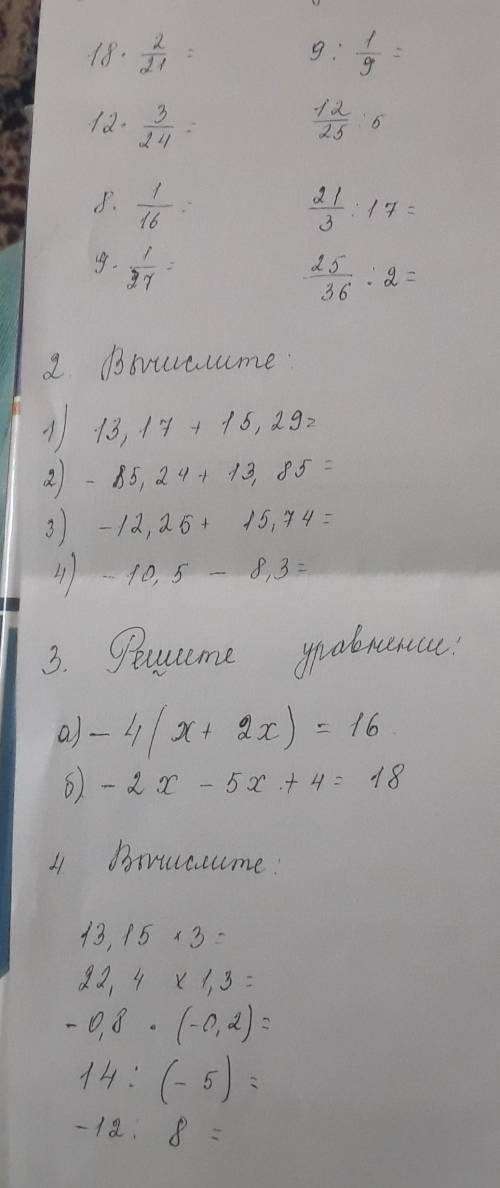 18 · 2/21 = 9 : 1/9 =
12 · 3/24 = 12/25 : 6
8 · 1/16 = 21/3 : 17 =
9 · 1/27 = 25/36 : 2 =
2. Вычислите:
1) 13,17 + 15,29=
2) - 85,24 + 13,85 =
3) -12,26 + 15,74 =
4) - 10,5 - 8,3 =
3. Решите уравнение:
а) - 4(x + 2x) = 16
б) - 2x - 5x + 4 = 18
4 Вычислите:
13,15 × 3 =
22,4 × 1,3 =
-0,8 · (-0,2) =
14 : (-5) =
-12 : 8 =